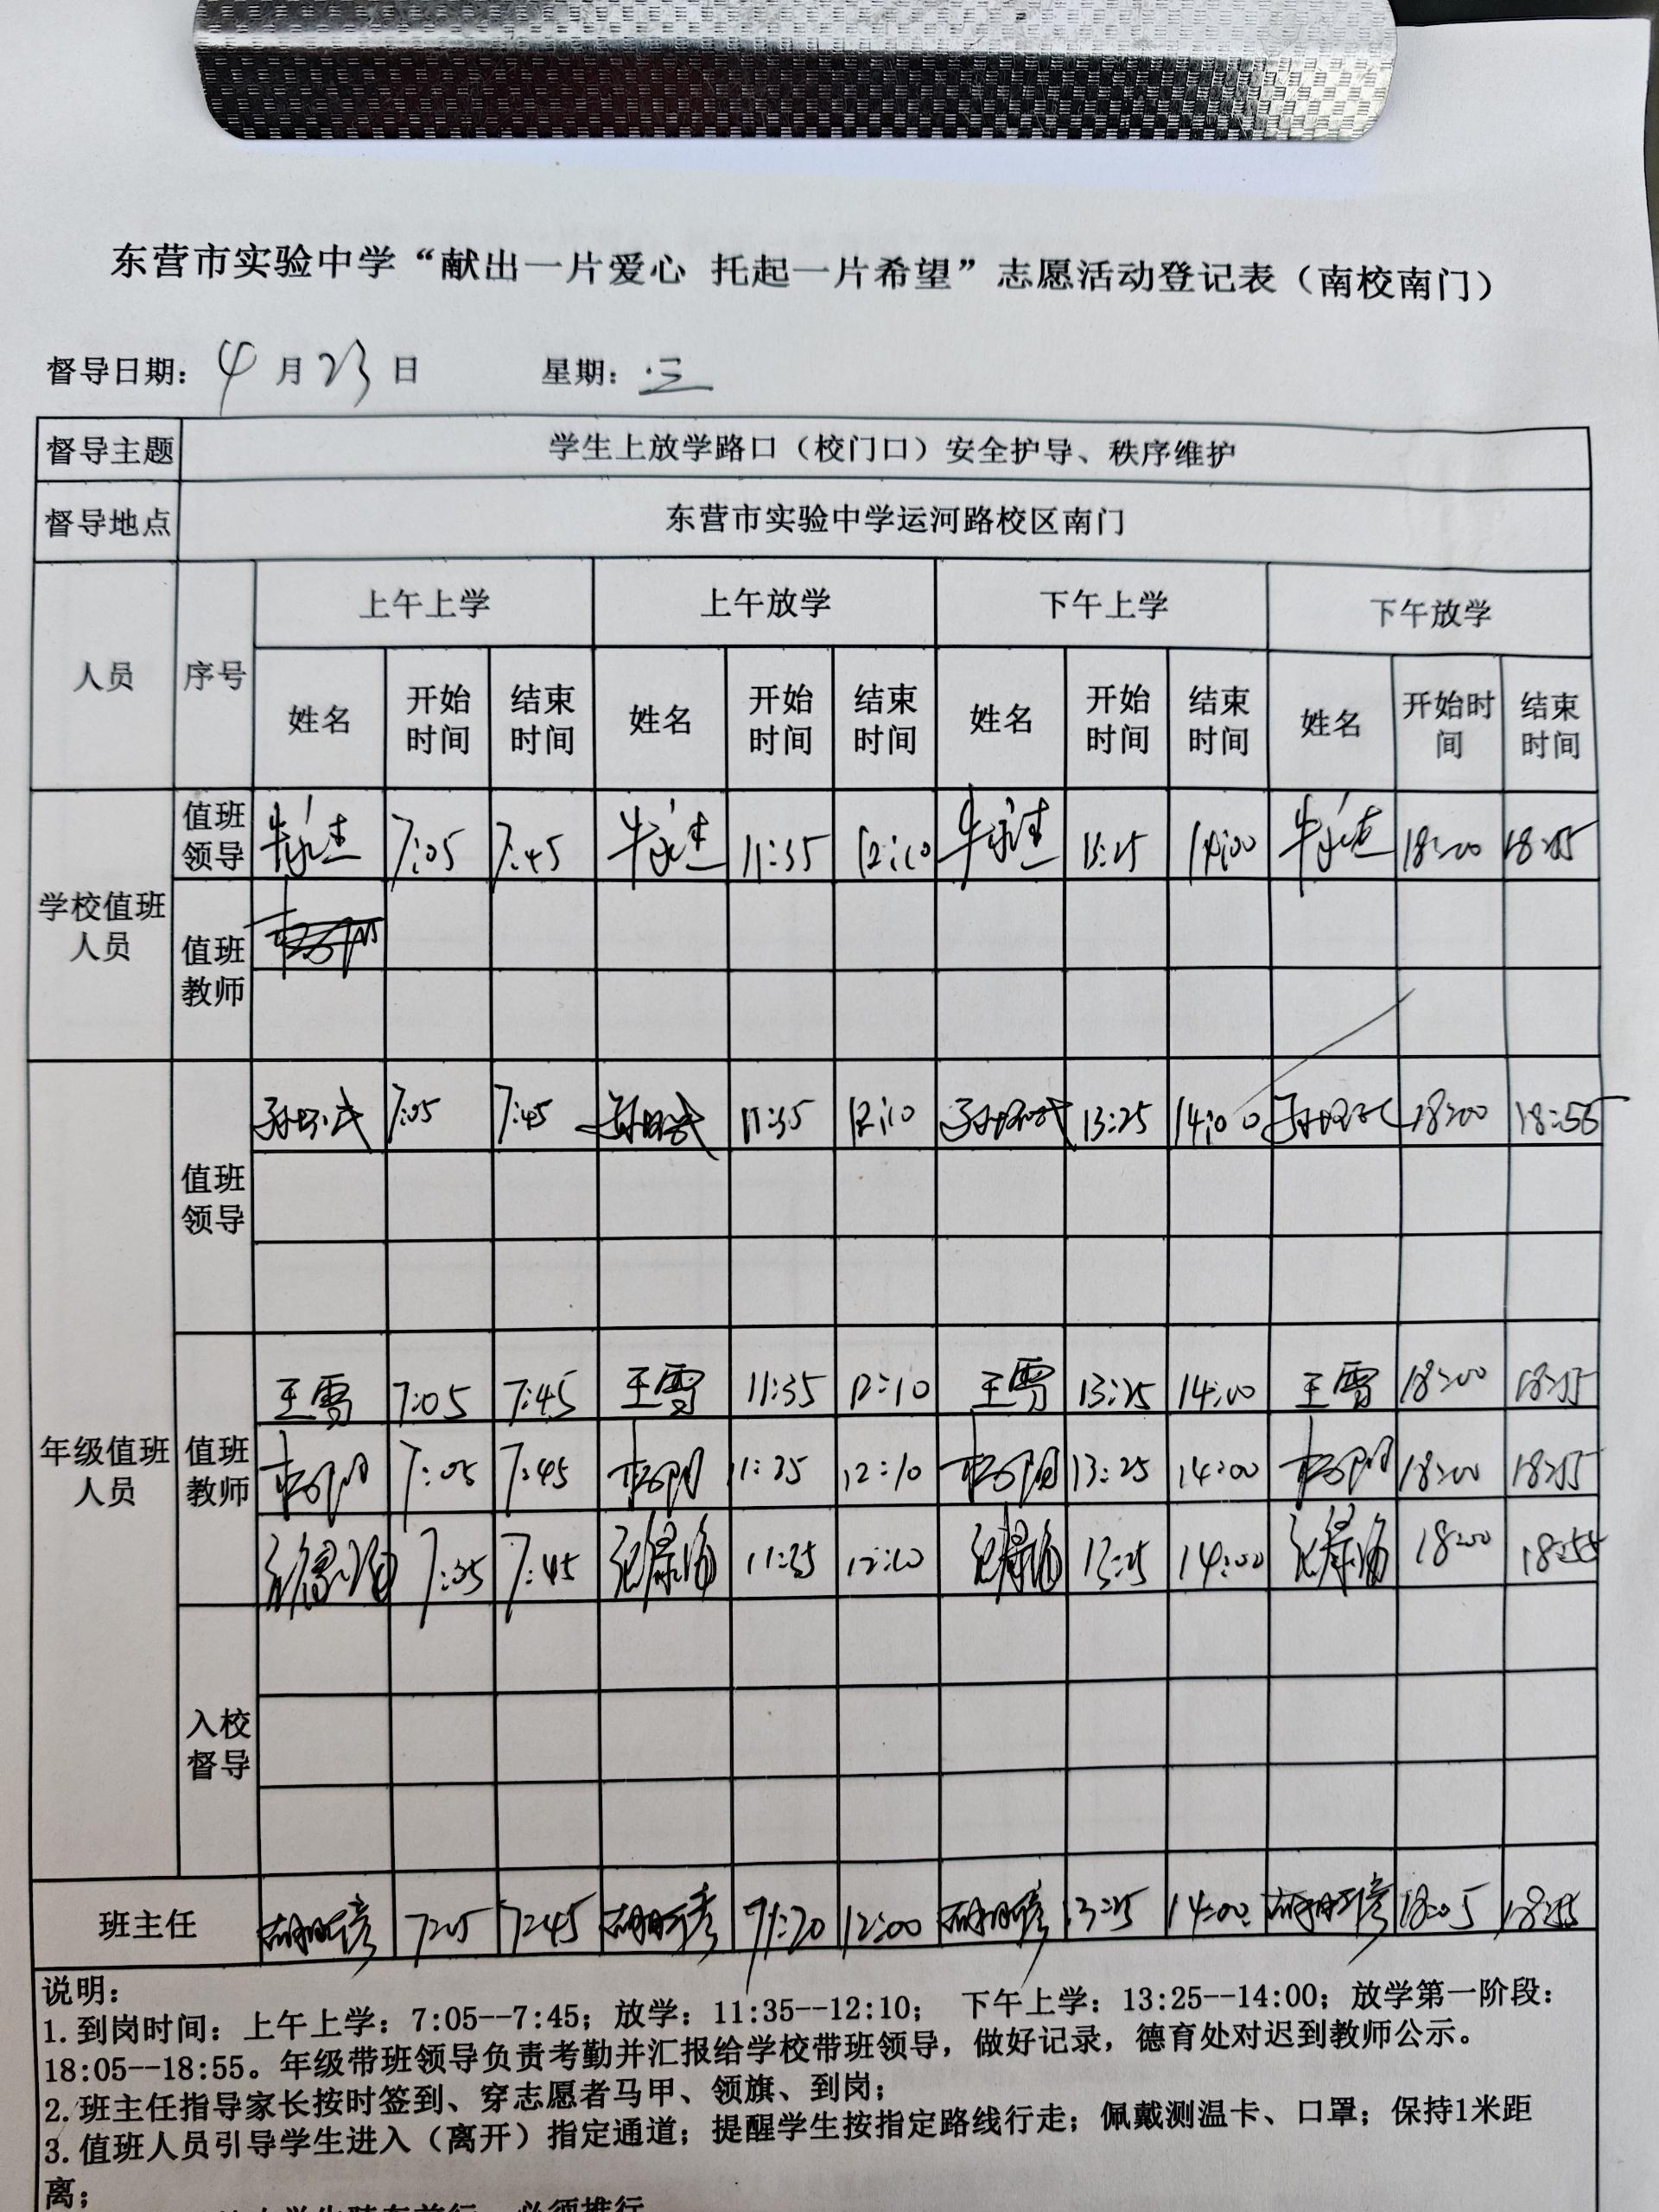 东营市实验中学“献出一片爱心 托起一片希望”志愿活动登记表（南校南门）
督导日期：4月23日 星期：三
督导主题 学生上放学路口（校门口）安全护导、秩序维护
督导地点 东营市实验中学运河路校区南门
人员 序号 上午上学 上午放学 下午上学 下午放学
姓名 开始时间 结束时间 姓名 开始时间 结束时间 姓名 开始时间 结束时间 姓名 开始时间 结束时间
学校值班人员
值班领导 7:05 7:45 11:35 12:10 13:25 14:00 18:00 18:55
值班教师
年级值班人员
值班领导 7:05 7:45 11:35 12:10 13:25 14:00 18:00 18:55
值班教师
王雪 7:05 7:45 王雪 11:35 12:10 王雪 13:25 14:00 王雪 18:00 18:55
7:05 7:45 11:35 12:10 13:25 14:00 18:00 18:55
7:05 7:45 11:35 12:10 13:25 14:00 18:00 18:55
入校督导
班主任 7:05 7:45 11:20 12:00 13:25 14:00 18:05 18:55
说明：
1.到岗时间：上午上学：7:05--7:45；放学：11:35--12:10； 下午上学：13:25--14:00；放学第一阶段：
18:05--18:55。年级带班领导负责考勤并汇报给学校带班领导，做好记录，德育处对迟到教师公示。
2.班主任指导家长按时签到、穿志愿者马甲、领旗、到岗；
3.值班人员引导学生进入（离开）指定通道；提醒学生按指定路线行走；佩戴测温卡、口罩；保持1米距
离；